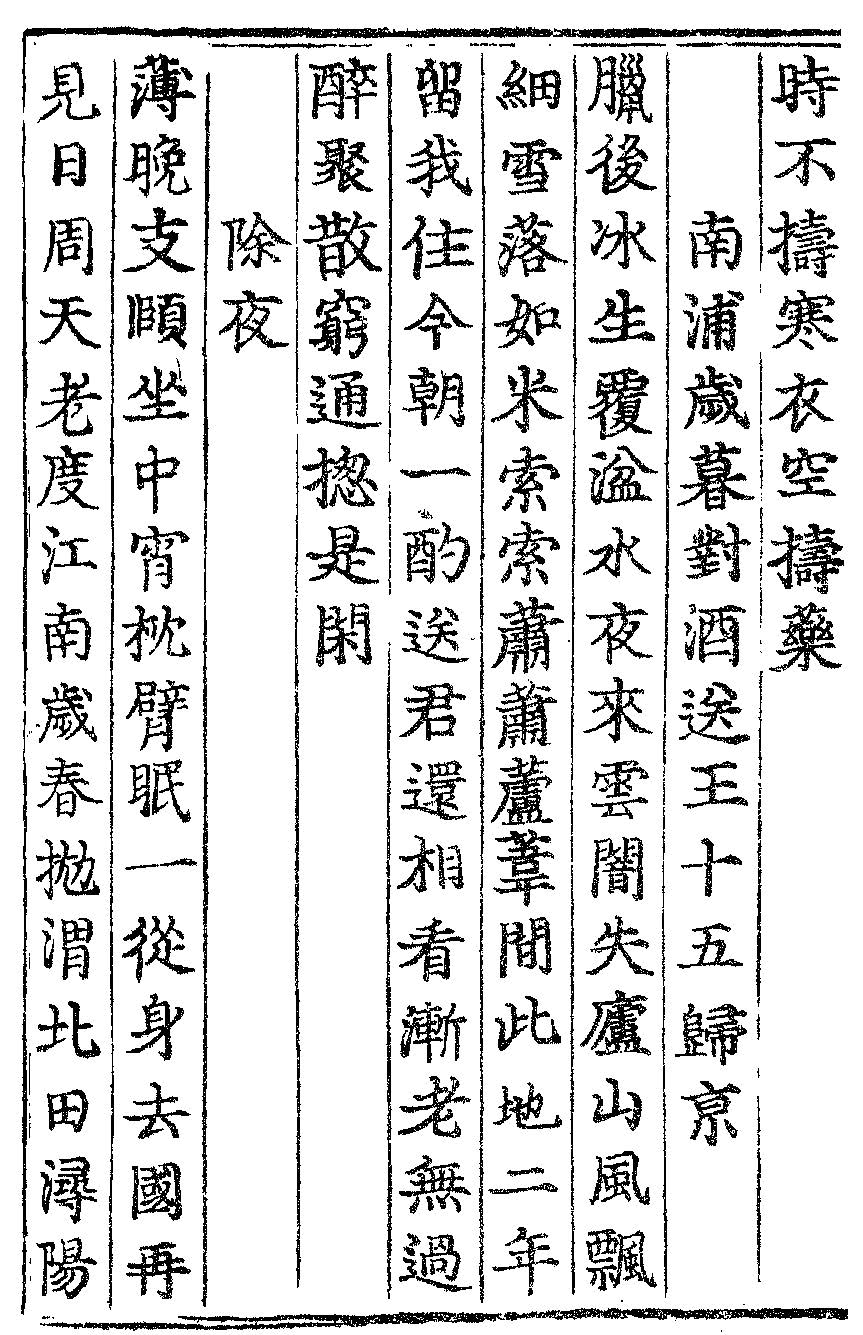 時不擣寒衣空擣藥
南浦歳暮對酒送王十五歸京
臘後冰生覆湓水夜來雲闇失廬山風飄
細雪落如米索索蕭蕭蘆葦間此地二年
留我住今朝一酌送君還相看漸老無過
醉聚散窮通揔是閑
除夜
薄晩支頤坐中宵枕臂眠一從身去國再
見日周天老度江南歳春抛渭北田潯陽